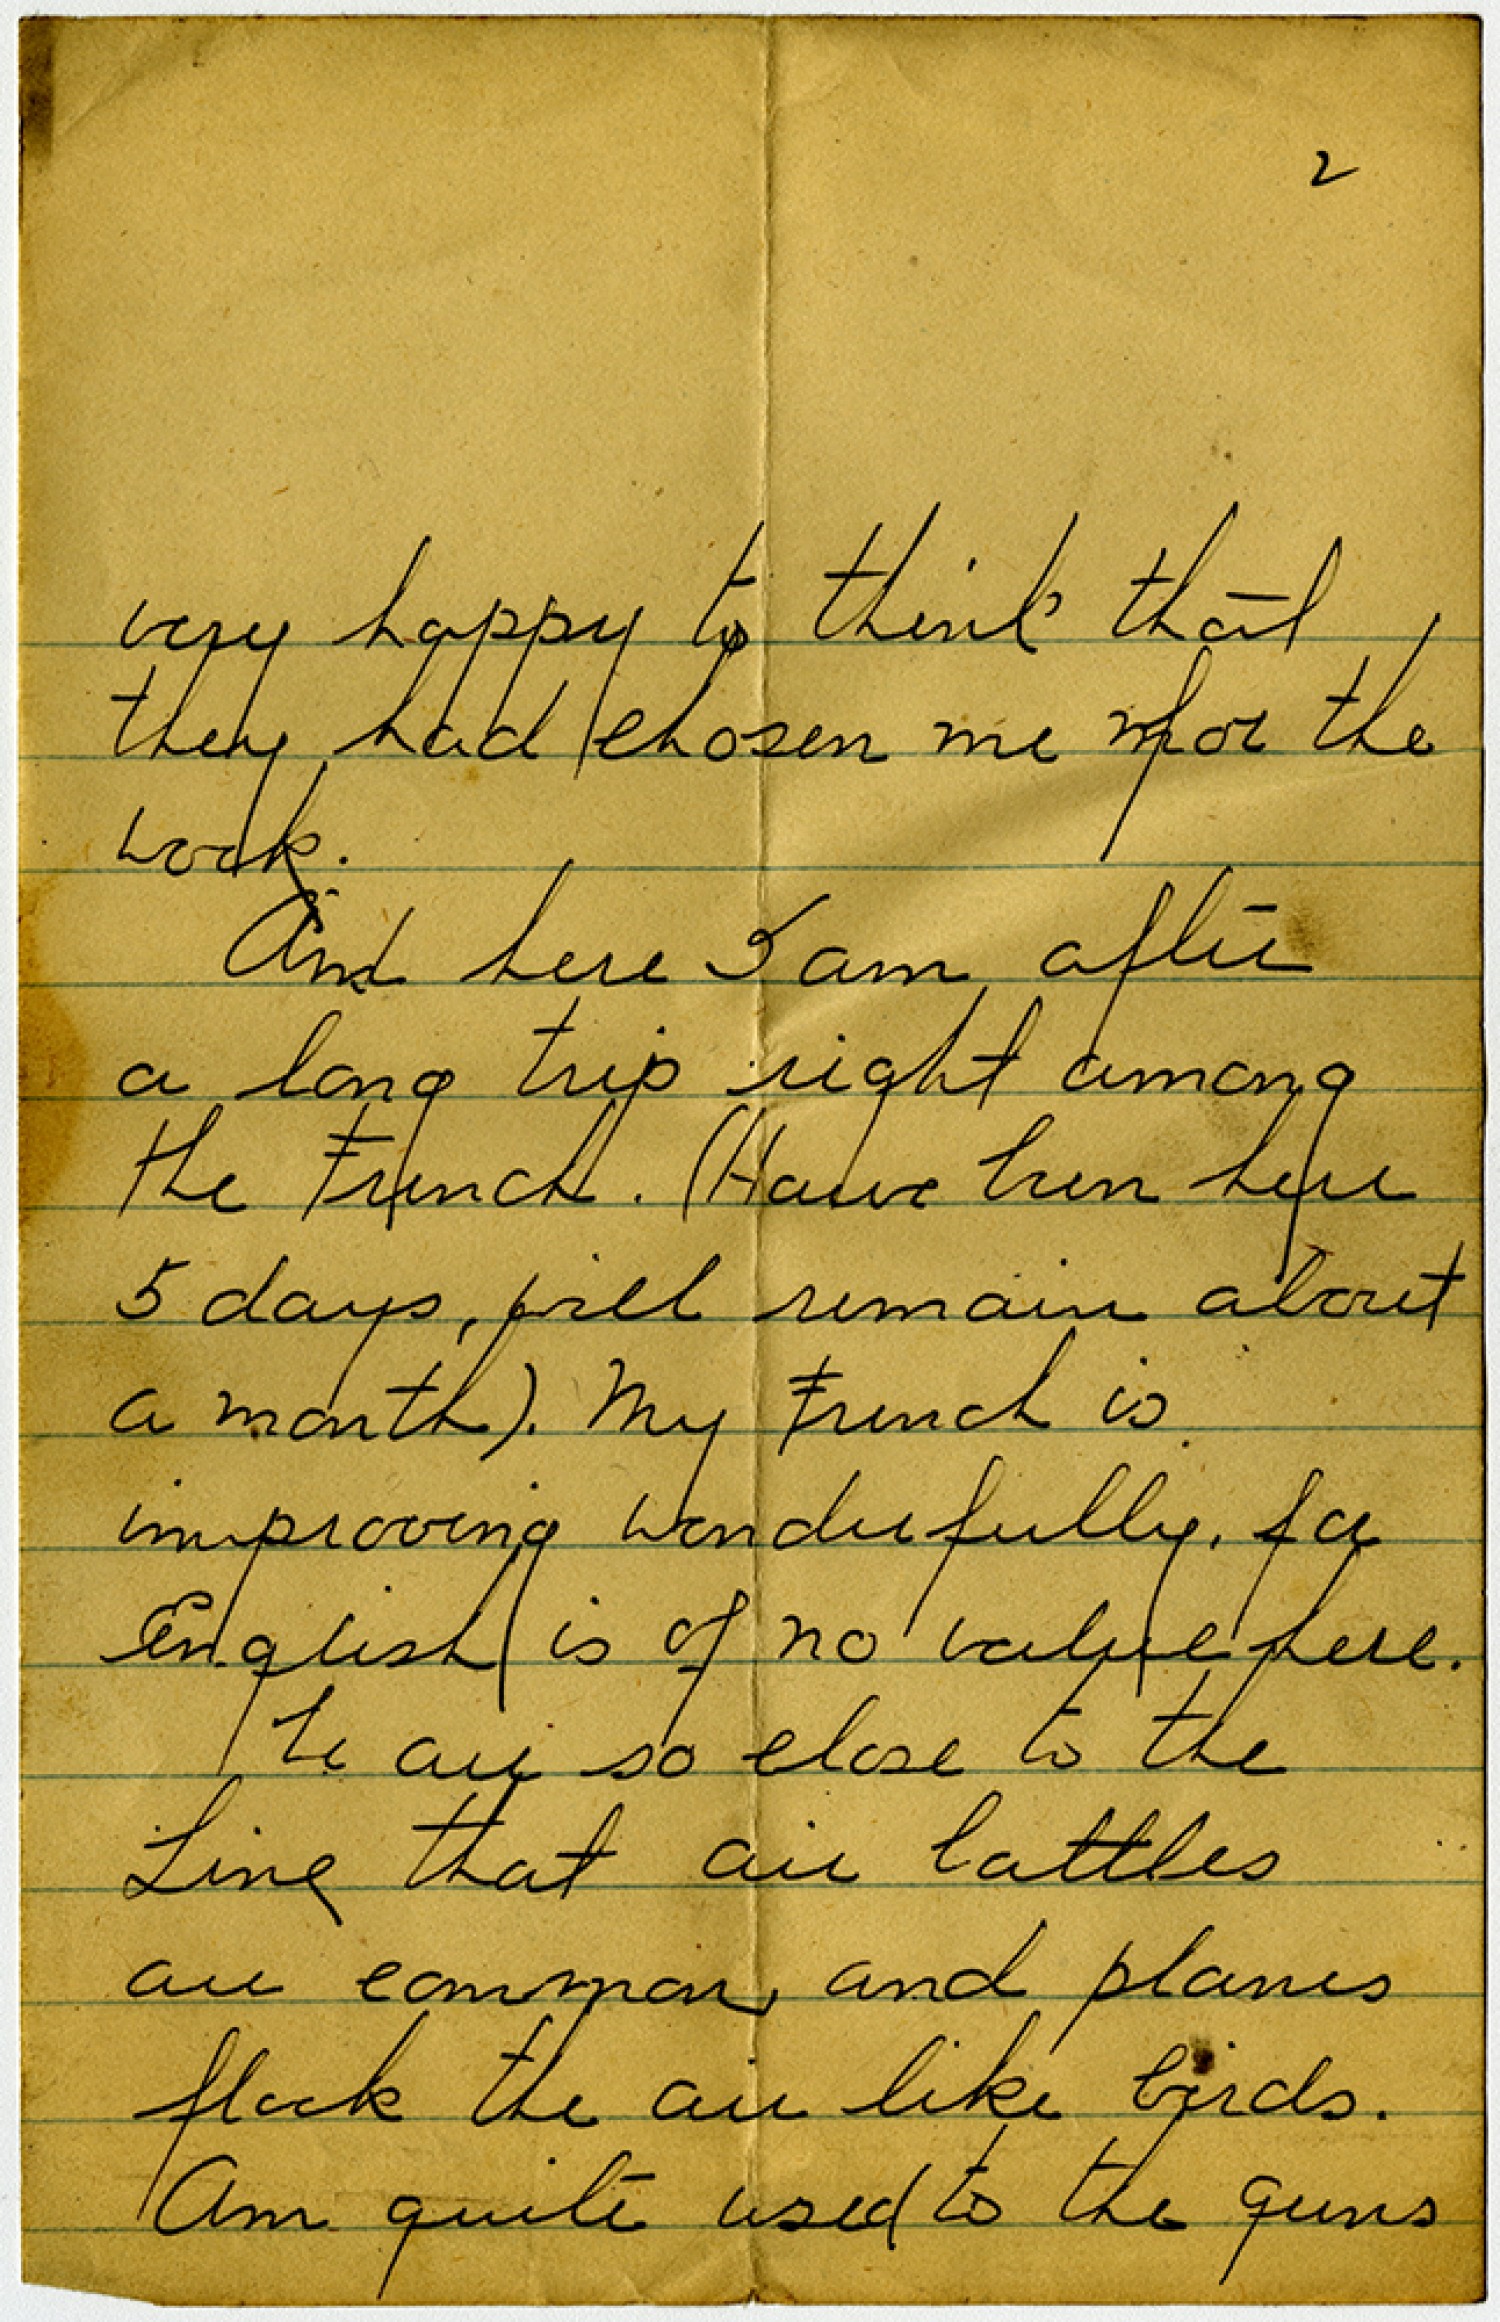 2
very happy to think that
they had chosen me for the
work.
And here I am after
a long trip right among
the French. (Have been here
5 days, will remain about
a month). My French is
improving wonderfully, for
English is of no value here.
We are so close to the
Line that air battles
are common, and planes
flock the air like birds.
Am quite used to the guns